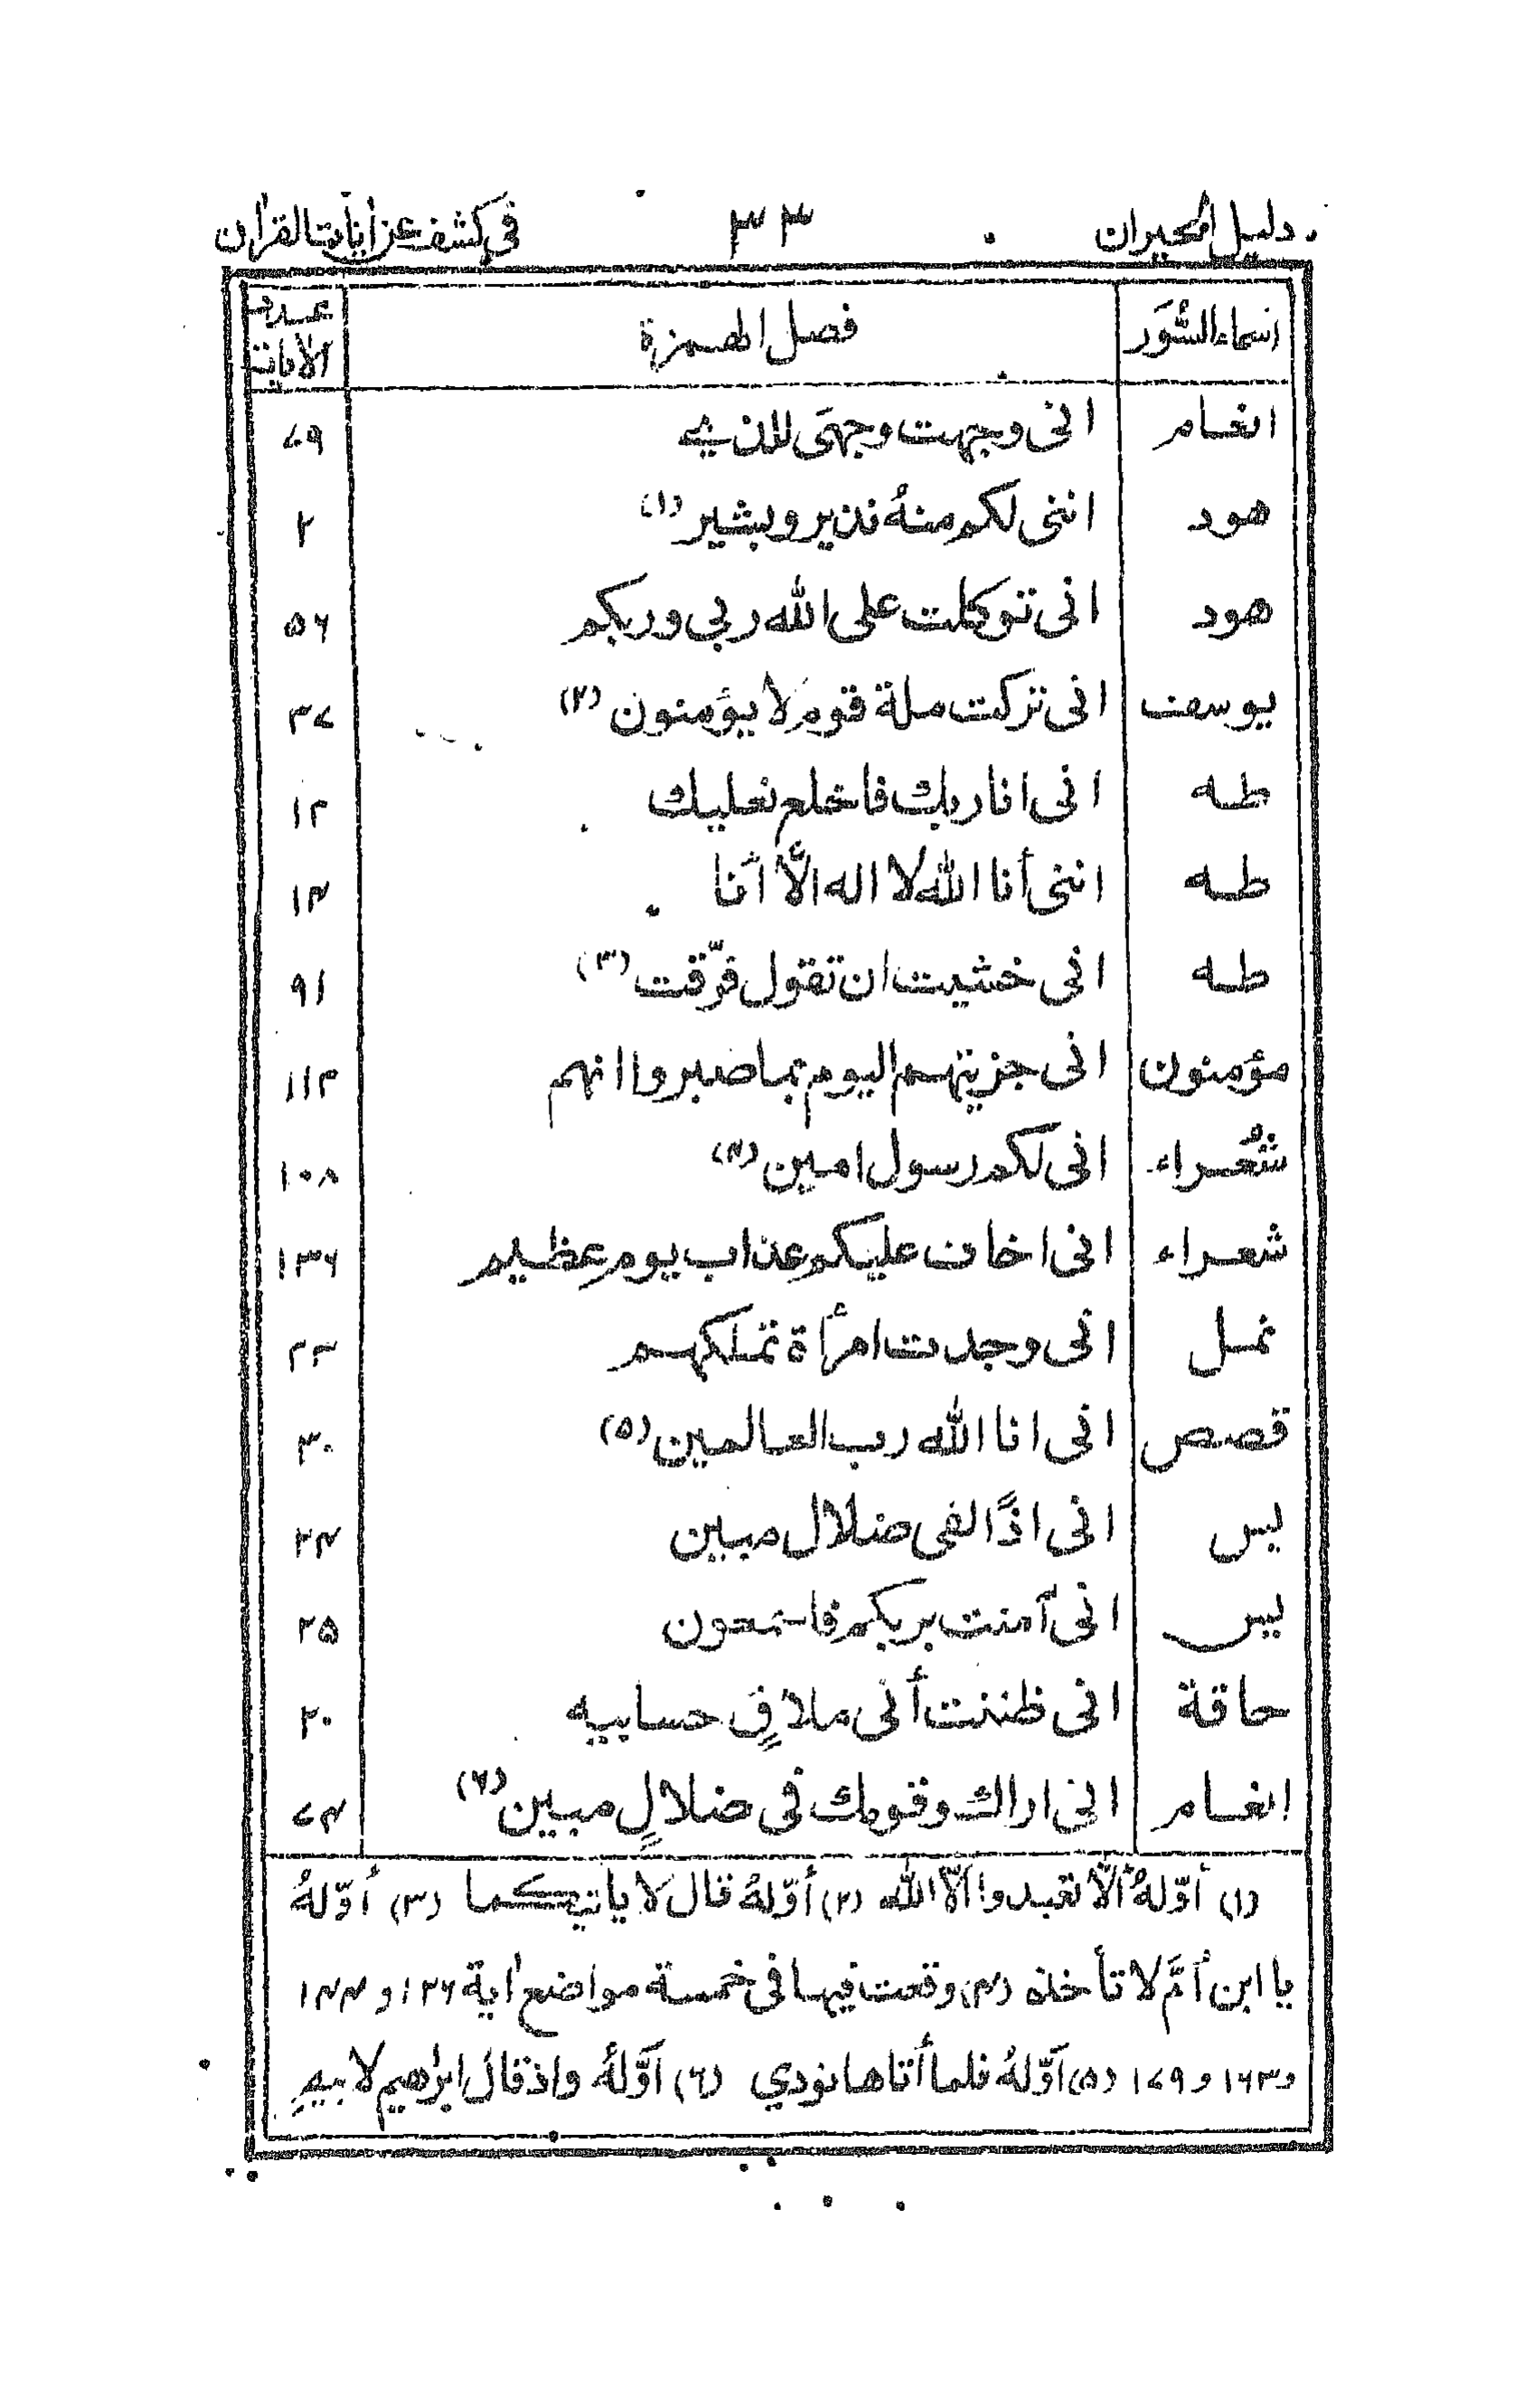 دليل الحيران ٣٣ في كشف عن آيات القرآن
اسماء السُّوَر فصل الهمزة عدد الآيات
انعام انى وجهت وجهىَ للذى ٧٩
هود اننى لكم منهُ نذير وبشير (١) ٢
هود انى توكلت على الله ربي وربكم ٥٦
يوسف انى تركت ملة قوم لا يؤمنون (٢) ٣٧
طه انى انا ربك فاخلع نعليك ١٢
طه اننى أنا الله لا اله الّا أنا ١٤
طه انى خشيت ان تقول فرّقت (٣) ٩١
مؤمنون انى جزيتهم اليوم بما صبروا انهم ١١٣
شُعراء انى لكم رسول امين (٤) ١٠٨
شعراء انى اخاف عليكم عذاب يوم عظيم ١٣٦
نمل انى وجدت امرأة تملكهم ٢٣
قصص انى انا الله رب العالمين (٥) ٣٠
يس انى اذًا لفى ضلال مبين ٢٤
يس انى آمنت بربكم فاسمعون ٢٥
حاقة انى ظننت أنى ملاقٍ حسابيه ٢٠
انعام انى اراك وقومك فى ضلالٍ مبين (٦) ٧٤
(١) أوّلهُ ألّا تعبدوا الّا الله (٢) أوّلهُ قال لا ياتيكما (٣) أوّلهُ
يا ابن أمَّ لا تأخذ (٤) وقعت فيها فى خمسة مواضع اٰية ١٢٦ و ١٤٤
و١٦٣ و ١٧٩ (٥) أوّلهُ فلما أتاها نودي (٦) أوَّلهُ واذ قال ابرٰهيم لابيهِ